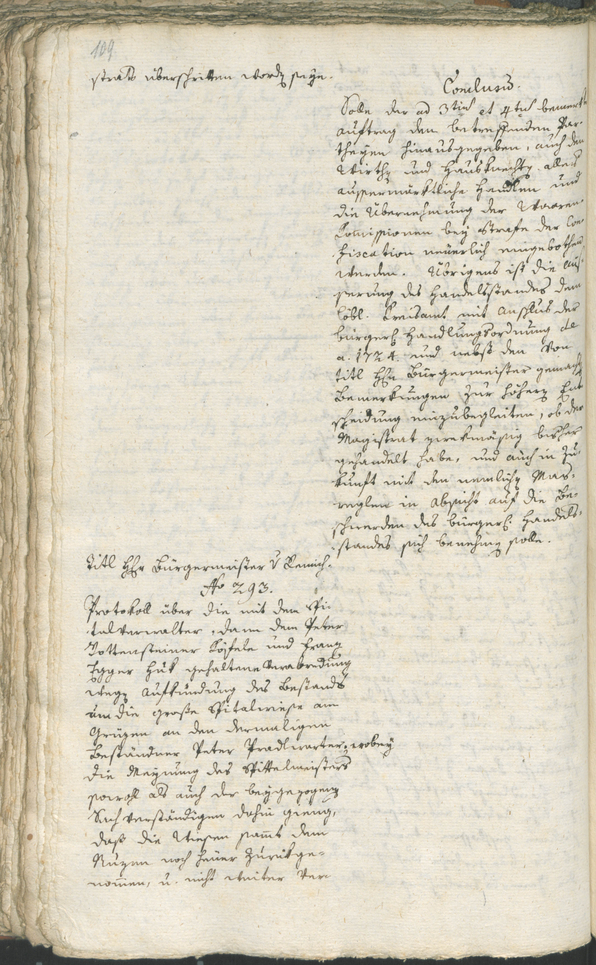 109
strats überschritten worden seye.
Conclusum.
Solle der ad 3tium et 4tum bemerkte
Auftrag den betreffenden Par-
theyen hinausgegeben, auch den
Wirthen und Hausknechten alles
aussermärktliche Handlen und
die Übernehmung der Waaren-
Comissionen bey Strafe der Con-
fiscation neuerlich eingebothen
werden. Übrigens ist die Äus-
serung des Handelsstandes dem
löbl. Kreisamt mit Anschlus der
bürgerl. Handlungsordnung de
a. 1724. und nebst den von
titl Hrn Bürgermeister gemachten
Bemerkungen zur höhern Ent-
scheidung einzubegleiten, ob der
Magistrat zwekmäsig bisher
gehandelt habe, und auch in Zu-
kunft mit den nemlichen Mas-
reglen in Absicht auf die Be-
schwerden des bürgerl. Handels-
standes sich benehmen solle.
titl Hr Bürgermeister v Remich.
No 293.
Protokoll über die mit dem Spi-
talverwalter, dann dem Peter
Tottensteiner Köfele und Franz
Egger Huk gehaltene Verabredung
wegen Aufkündung des Bestands
um die große Spitalwiese am
Grüzen an den dermaligen
Beständner Peter Pradlwarter, wobey
die Meynung des Spittelmeisters
sowohl als auch der beygezogenen
Sachverständigen dahin gieng,
daß die Wiesen samt dem
Nuzen noch heuer zurükge-
nommen, u. nicht weiter ver-